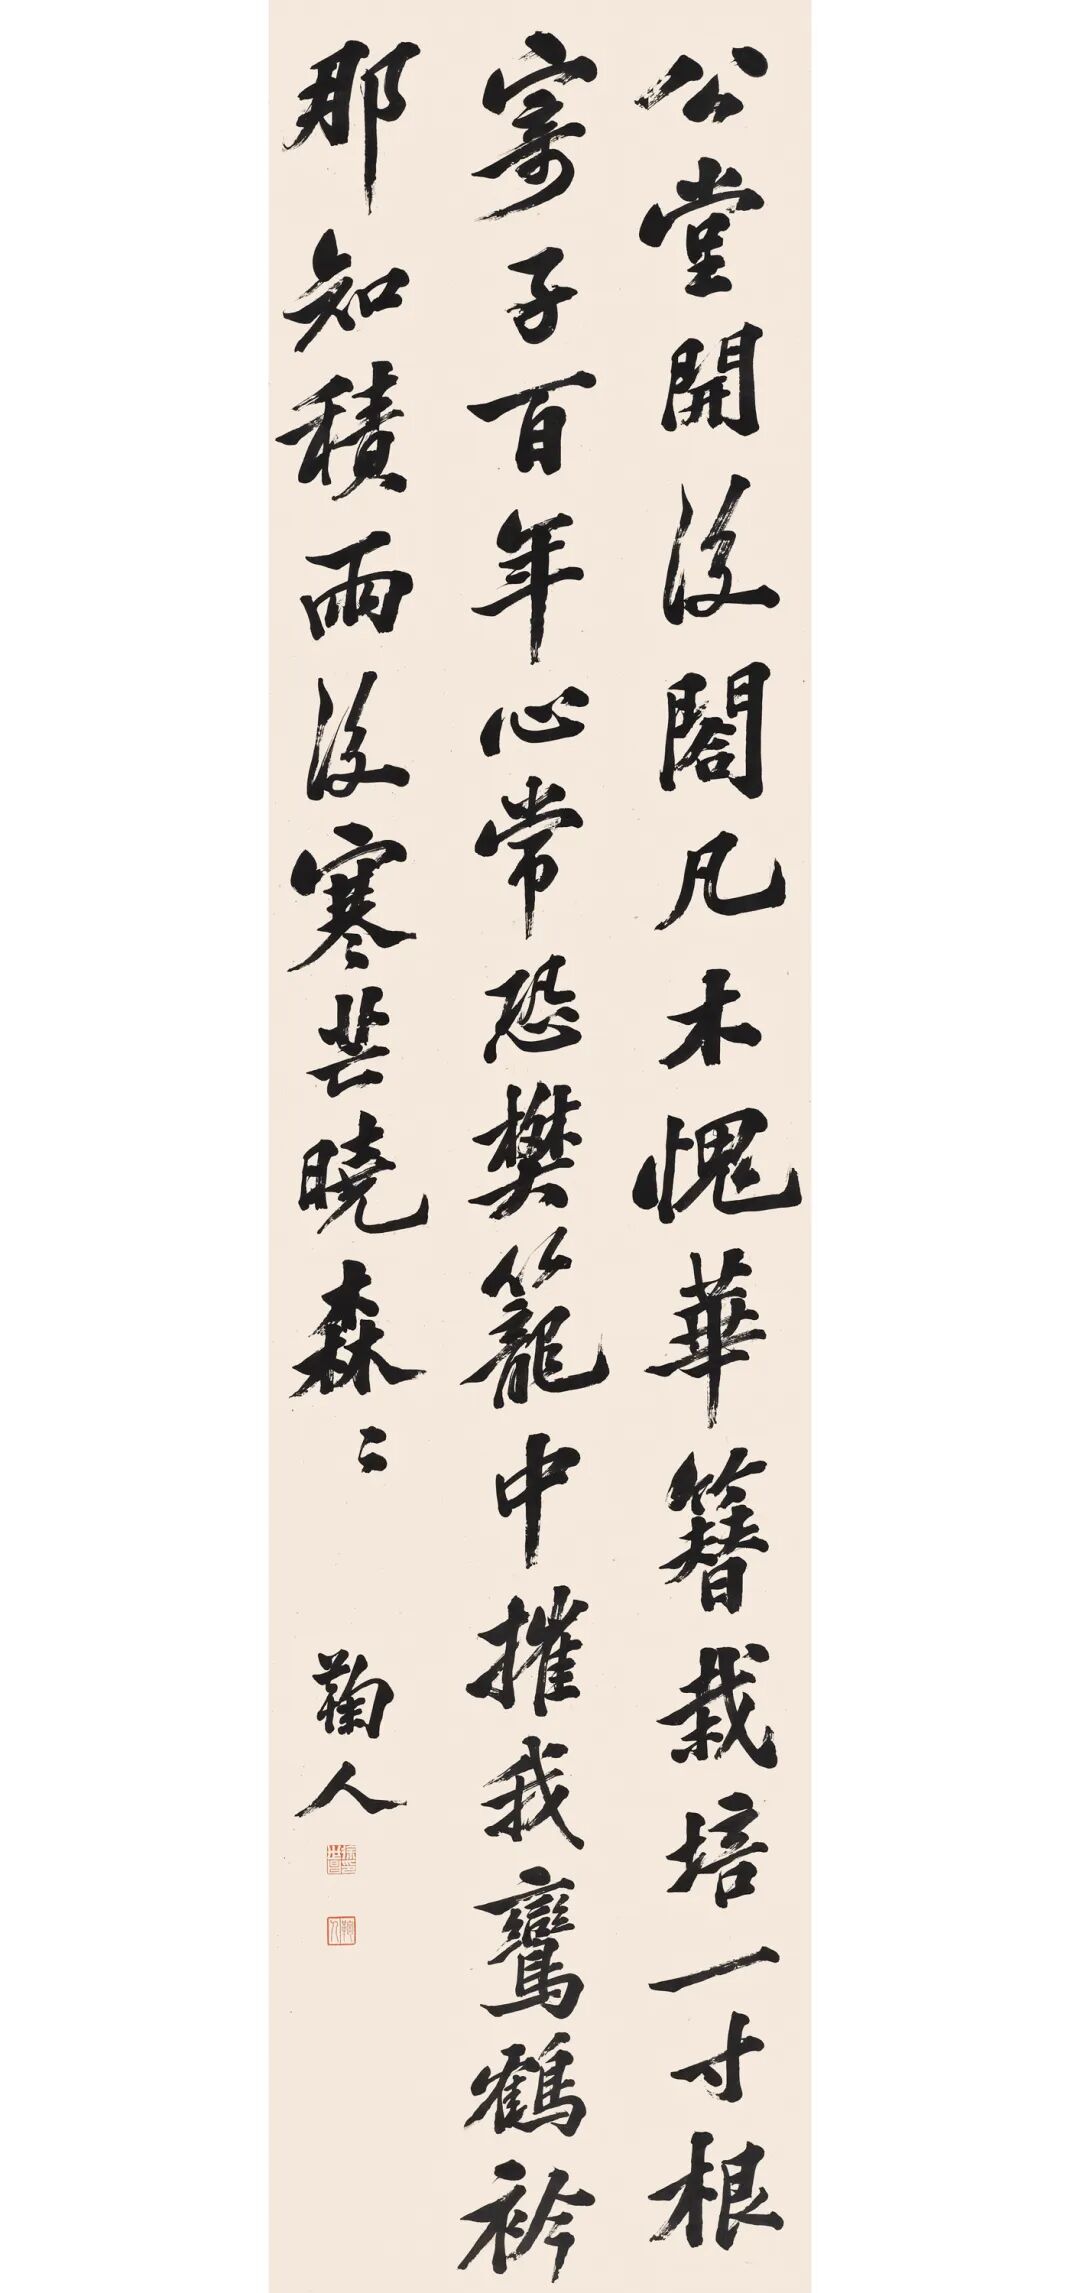 公堂開後閣凡木愧華簪栽培一寸根
寄子百年心常恐樊籠中摧我鸞鶴衿
那知積雨後寒芒曉森〻
鞠人
徐世昌印
鞠人